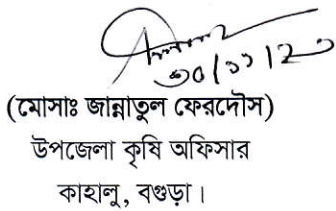 ৩০/১১/২০
(মোসাঃ জান্নাতুল ফেরদৌস)
উপজেলা কৃষি অফিসার
কাহালু, বগুড়া।